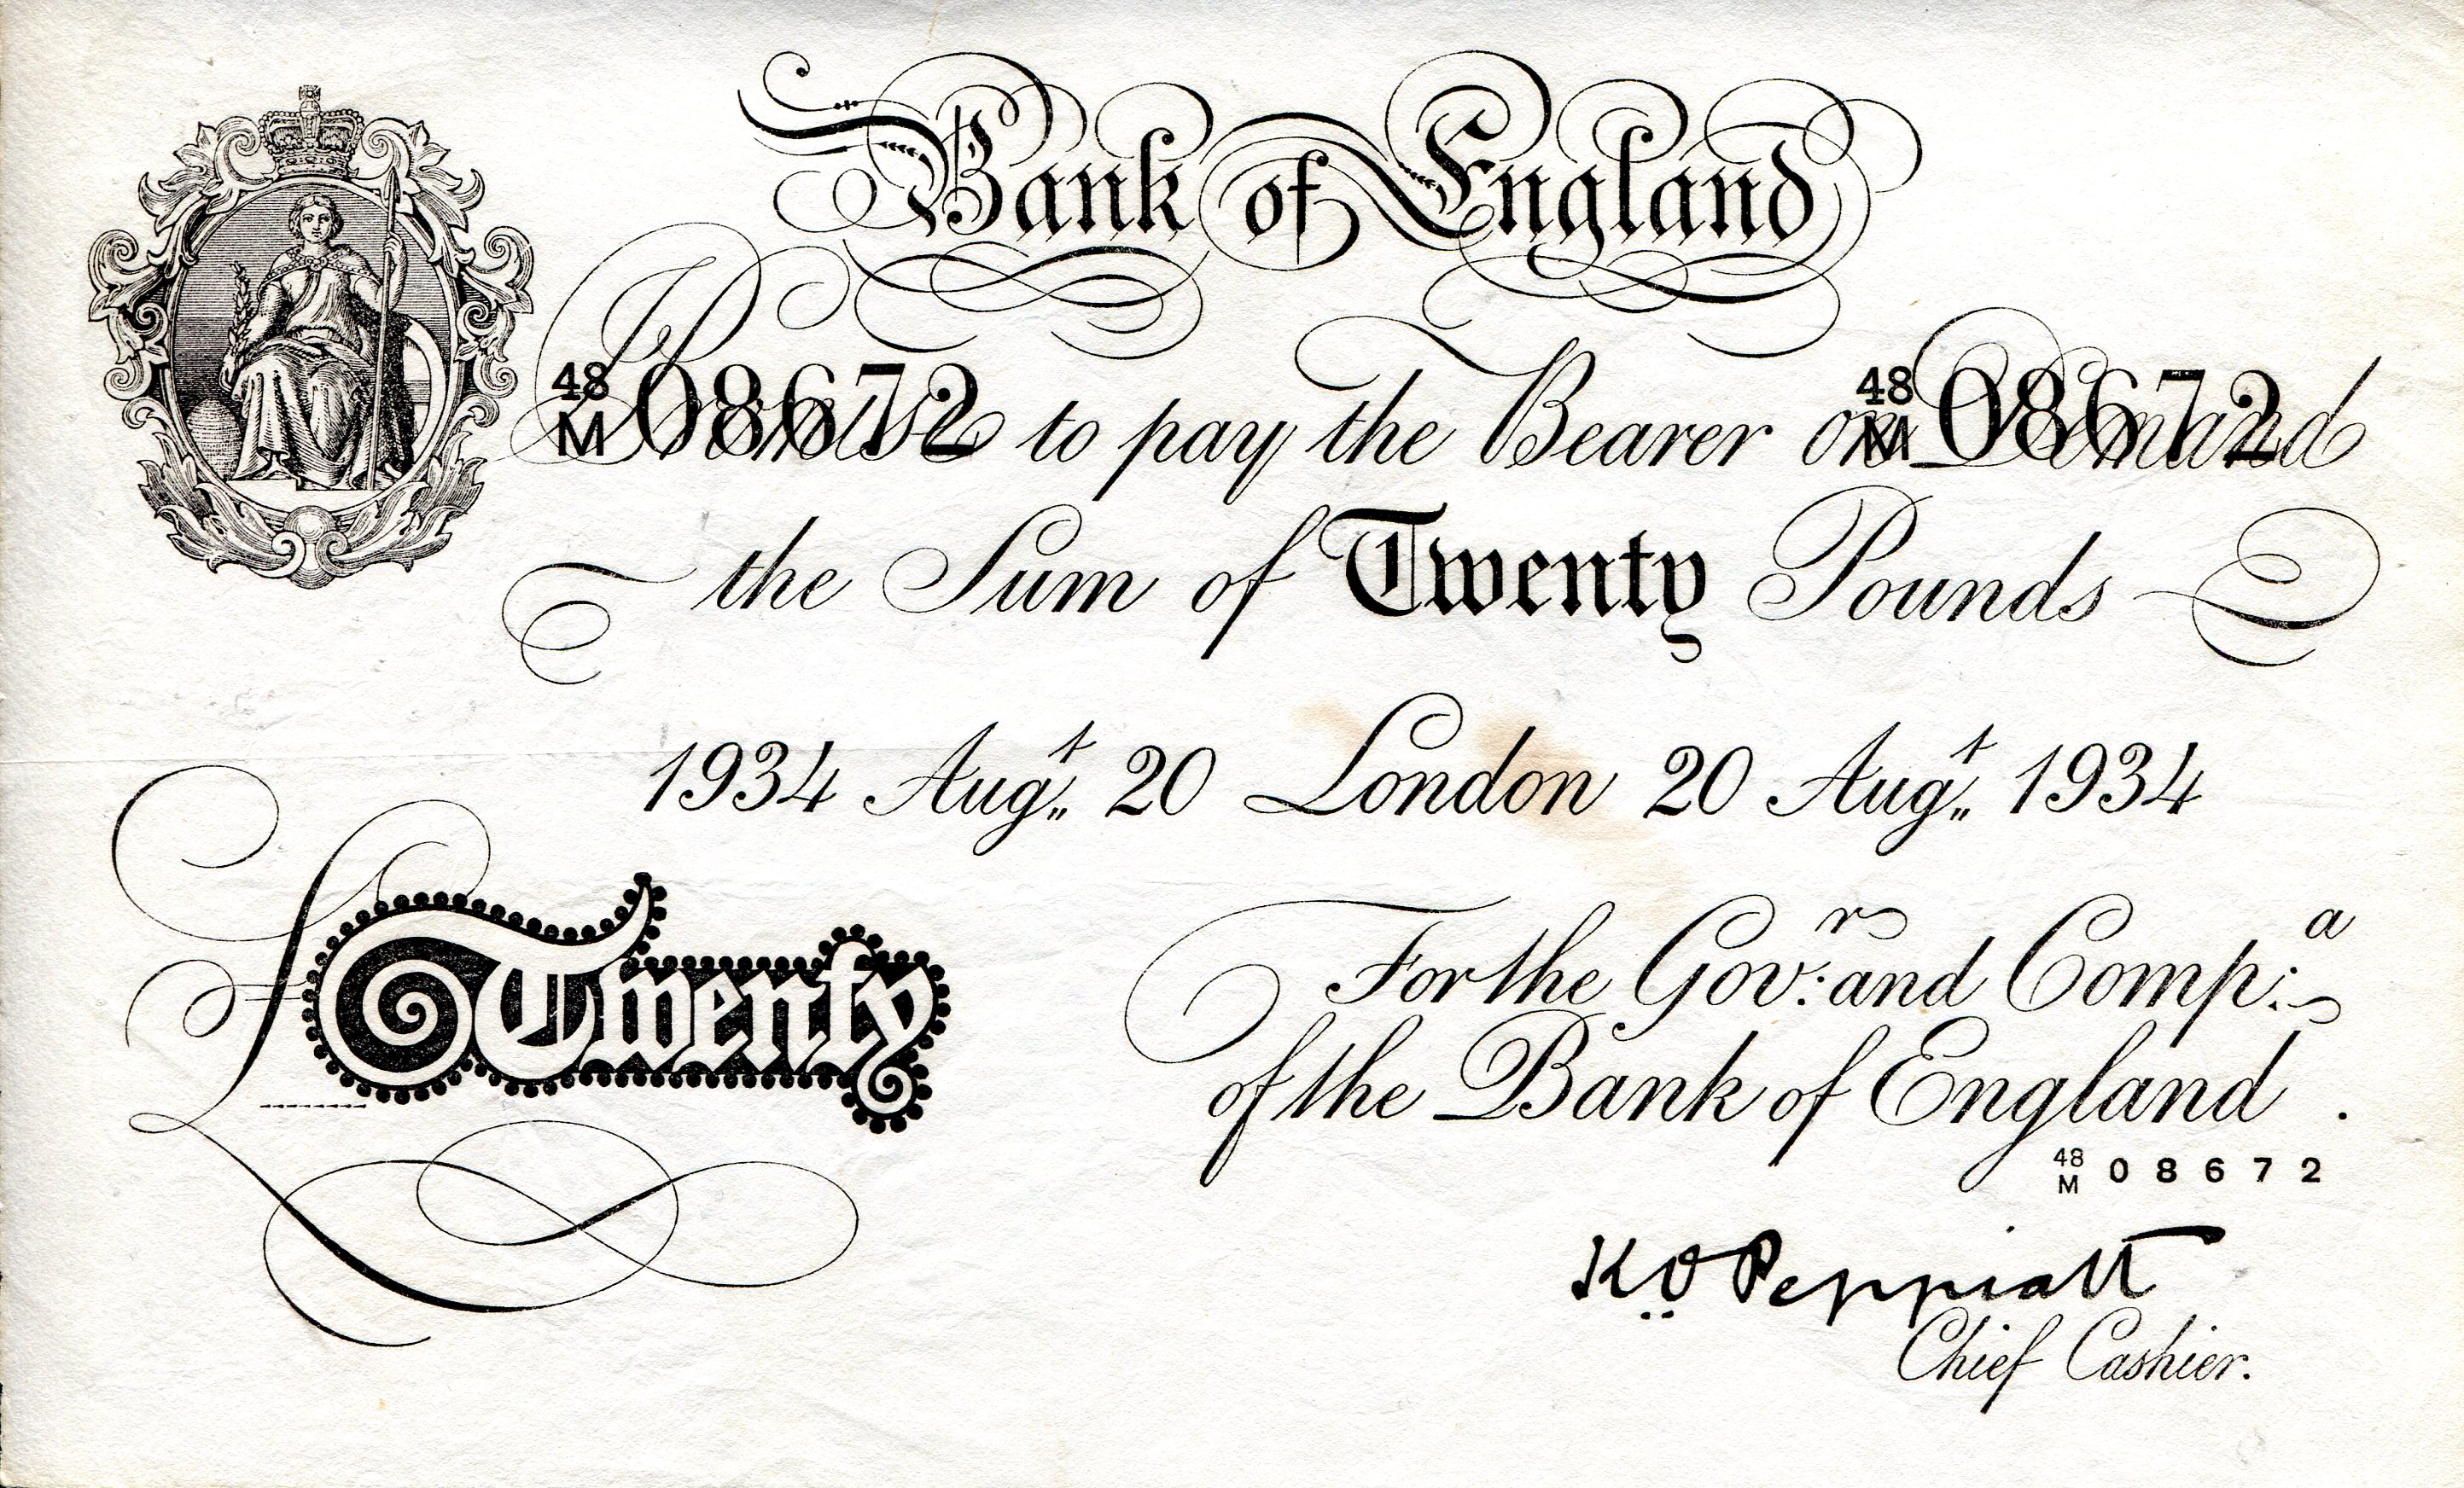 Bank of England
I Promise to pay the Bearer on Demand
48 M 08672 48 M 08672
the Sum of Twenty Pounds
1934 Augt 20 London 20 Augt 1934
£ Twenty
For the Govr: and Compa:
of the Bank of England.
48 M 08672
K O Peppiatt
Chief Cashier.